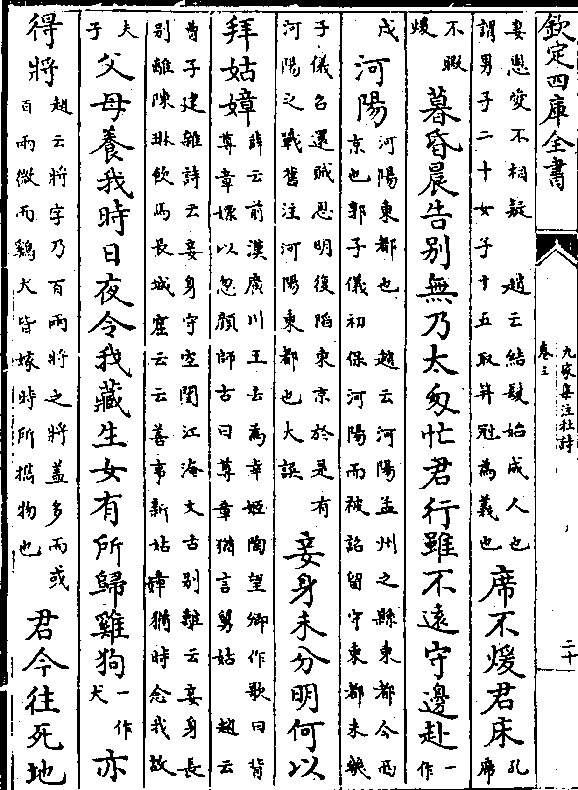 欽定四庫全書
九家集注杜詩
卷三
二十
妻恩愛不相疑 趙云結髮始成人也
謂男子二十女子十五取笄冠為義也
席不煖君床
孔
席
不暇
煖
暮昏晨告別無乃太匆忙君行雖不遠守邊赴
一
作
戍
河陽
河陽東都也 趙云河陽孟州之縣東都今西
京也郭子儀初保河陽而被詔留守東都未幾
子儀召還賊思明復陷東京於是有
河陽之戰舊注河陽東都也大誤
妾身未分明何以
拜姑嫜
薛云前漢廣川王去為幸姬陶望卿作歌曰背
尊章嫖以忽顏師古曰尊章猶言舅姑 趙云
曹子建雜詩云妾身守空閨江淹文古別離云妾身長
別離陳琳飲馬長城窟云云善事新姑嫜猶時念我故
夫
子
父母養我時日夜令我藏生女有所歸雞狗
一作
犬
亦
得將
趙云將字乃百兩將之將蓋多而或
百兩微而鷄犬皆嫁時所攜物也
君今往死地